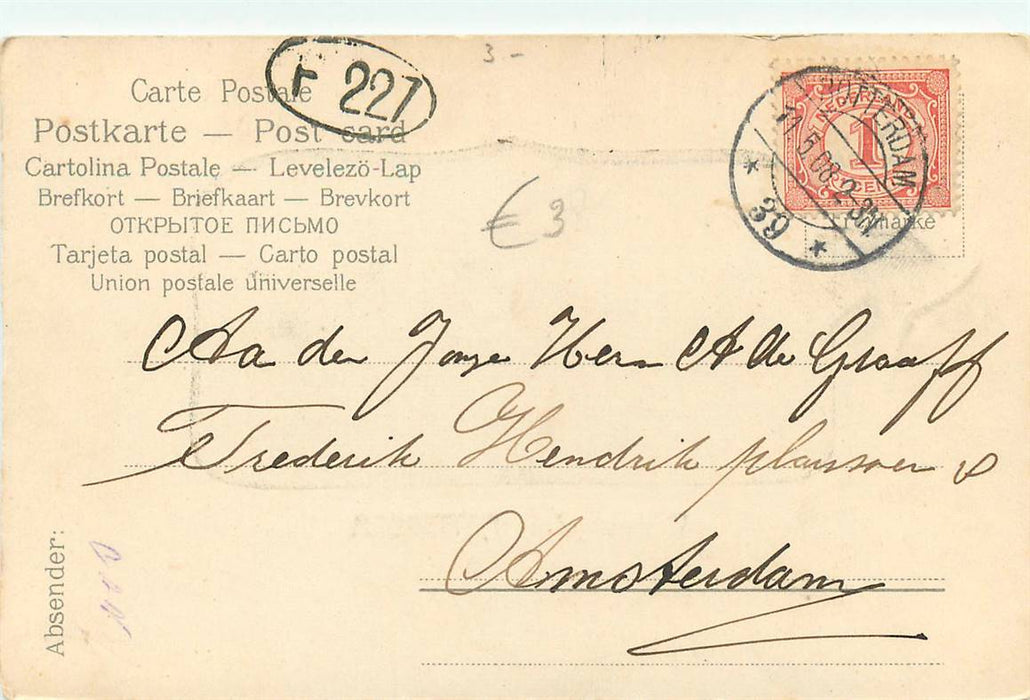 3-
F 221
Carte Postale
Postkarte — Post card
Cartolina Postale — Levelezö-Lap
Brefkort — Briefkaart — Brevkort
ОТКРЫТОЕ ПИСЬМО
Tarjeta postal — Carto postal
Union postale universelle
€ 3
NEDERLAND
1
CENT
ROTTERDAM
11 5 08 2-3N
* 39 *
Frei marke
Aa den Jonge Heer A de Graaff
Frederik Hendrik plaisoen
Amsterdam
Absender: